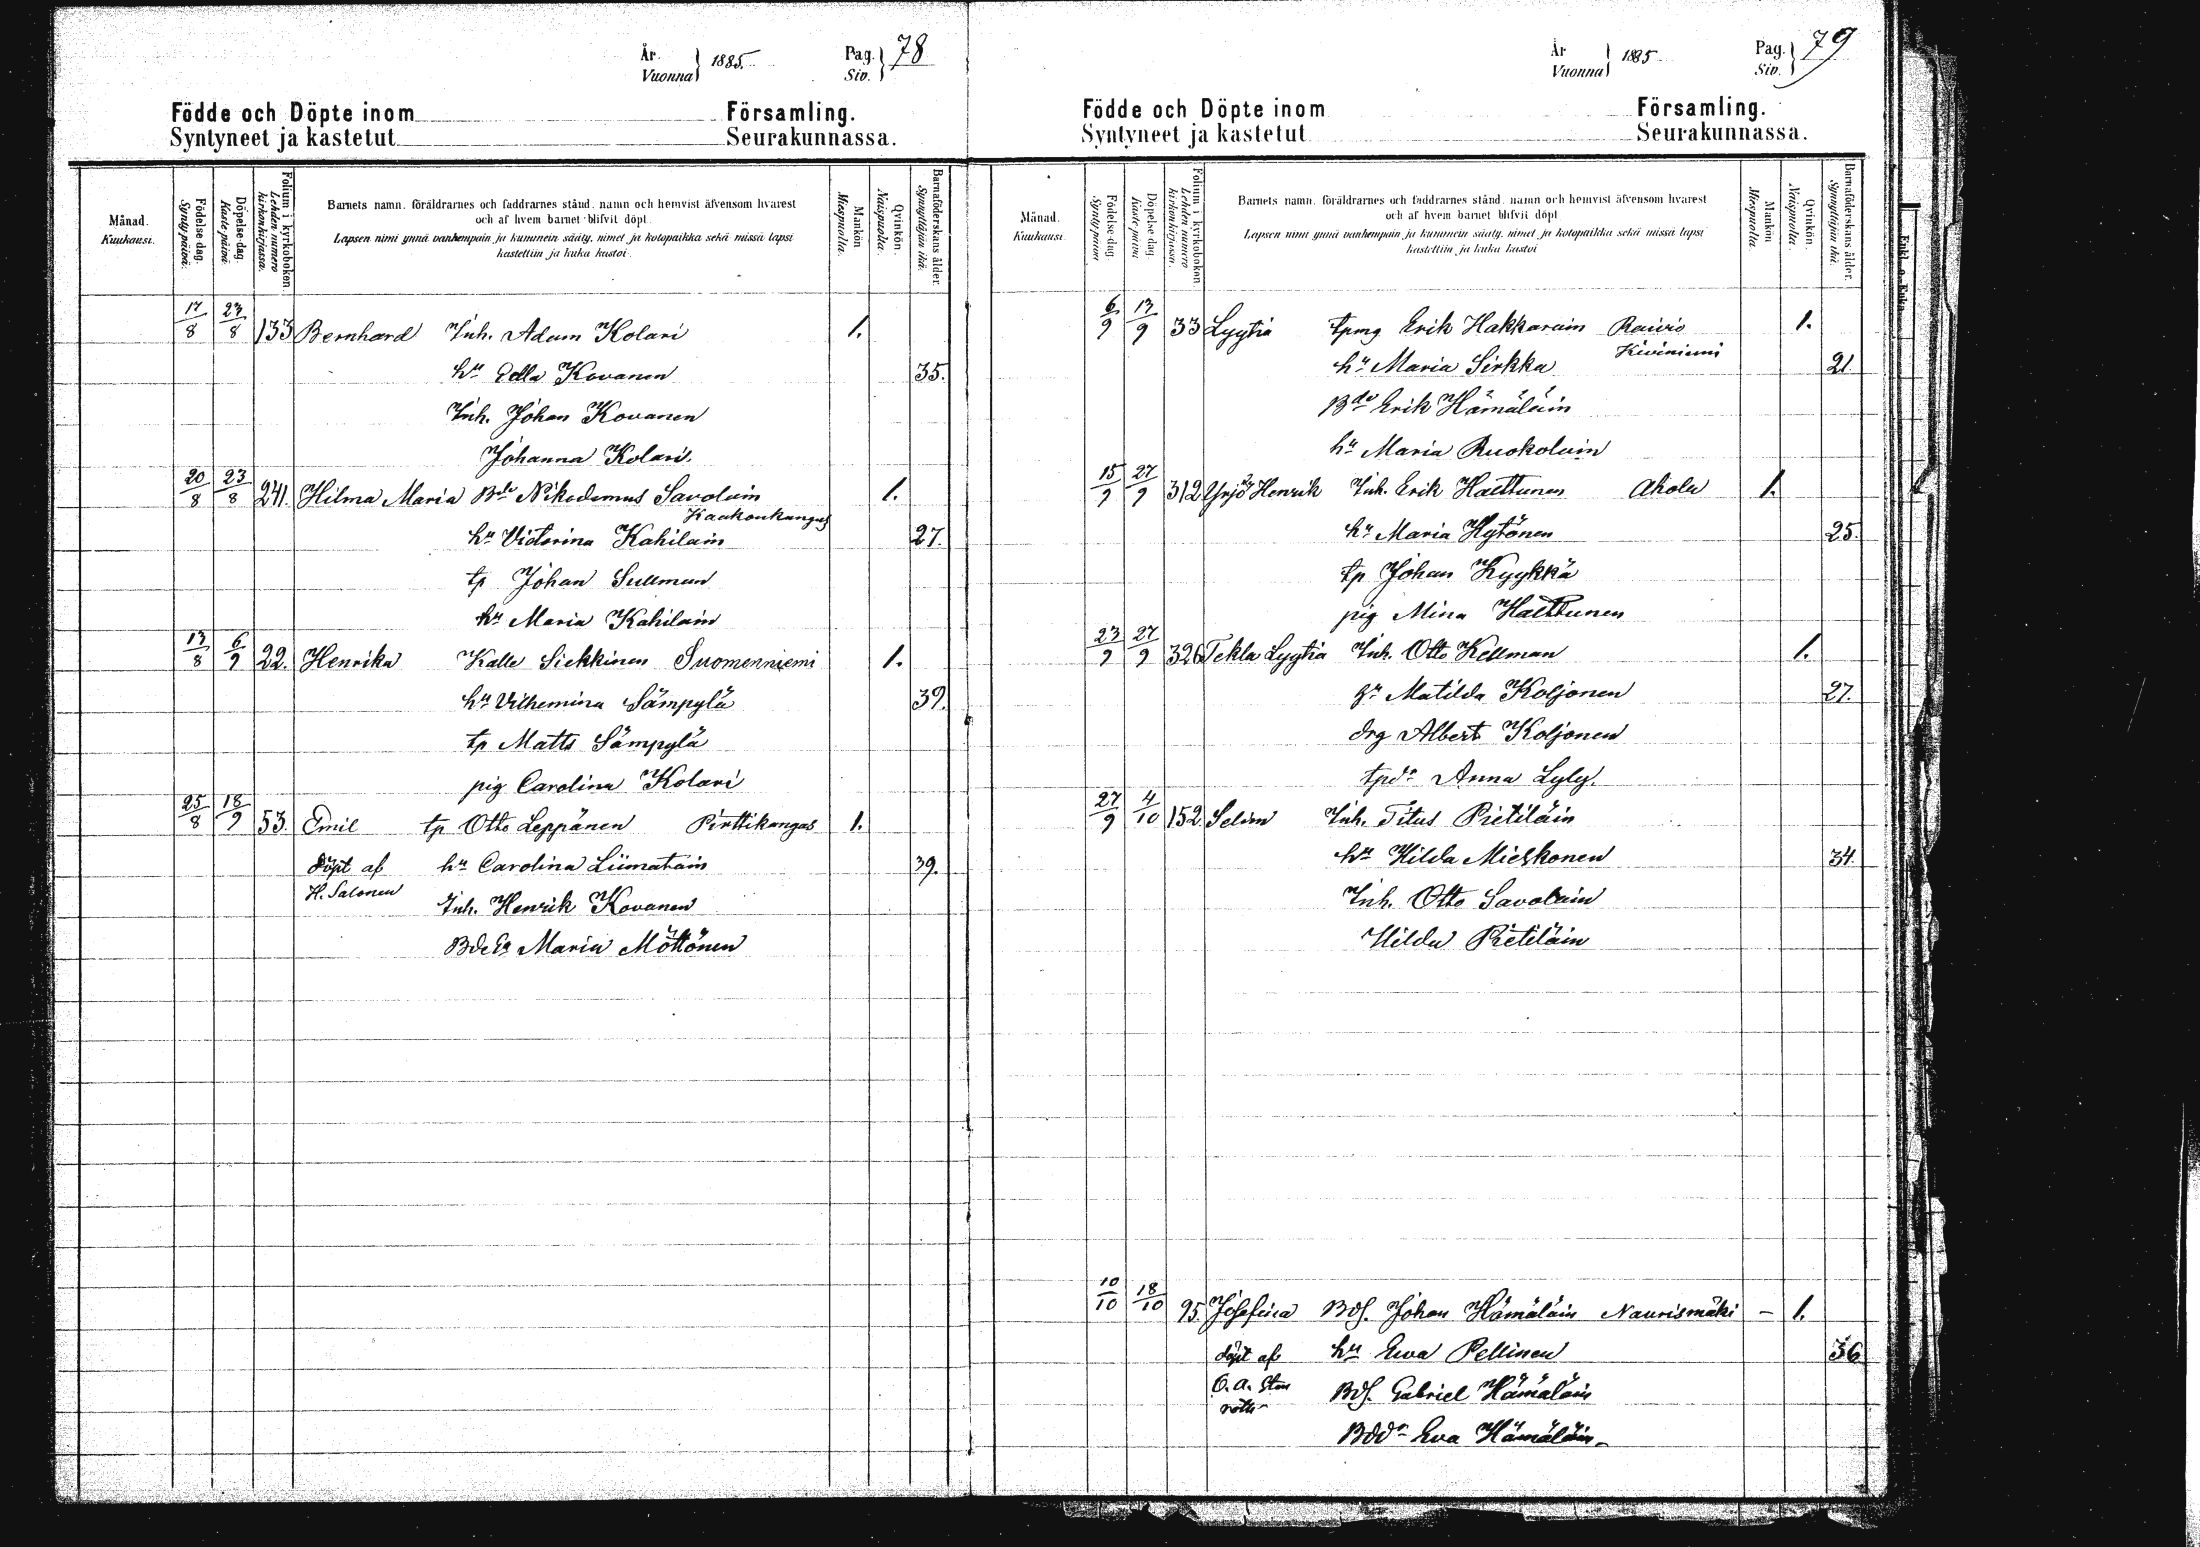 År.
Vuonna } 1885. Pag.
Siv. } 78
Födde och Döpte inom Församling.
Syntyneet ja kastetut Seurakunnassa.
Månad.
Kuukausi.
Födelse dag.
Synty päivä.
Döpelse dag.
Kaste päivä.
Folium i kyrkoboken
Lehden numero kirkonkirjassa.
Barnets namn, föräldrarnes och faddrarnes stånd, namn och hemvist äfvensom hvarest
och af hvem barnet blifvit döpt.
Lapsen nimi ynnä vanhempain ja kummein sääty, nimet ja kotopaikka sekä missä lapsi
kastettiin ja kuka kastoi.
Mankön
Miespuolta.
Qvinkön.
Naispuolta.
Barnaföderskans ålder.
Synnyttäjän ikä.
17/8 23/8 133 Bernhard Inh. Adam Kolari 1.
hu Edla Kovanen 35.
Inh. Johan Kovanen
Johanna Kolari
20/8 23/8 241. Hilma Maria Bde Nikodemus Savolain 1.
Kaakonkangas
hu Victorina Kahilain 27.
tp Johan Sullman
hu Maria Kahilain
13/8 6/9 22. Henrika Kalle Siekkinen Suomenniemi 1.
hu Vilhemina Sämpylä 39.
tp Matts Sämpylä
pig Carolina Kolari
25/8 18/9 53. Emil tp Otto Leppänen Pirttikangas 1.
döpt af hu Carolina Liimatain 39.
H. Salonen
Inh. Henrik Kovanen
Maria Möttönen
År
Vuonna } 1885 Pag.
Siv. } 79
Födde och Döpte inom Församling.
Syntyneet ja kastetut Seurakunnassa.
Månad.
Kuukausi.
Födelse dag.
Synty päivä
Döpelse dag.
Kaste päivä
Folium i kyrkoboken
Lehden numero kirkonkirjassa.
Barnets namn, föräldrarnes och faddrarnes stånd, namn och hemvist äfvensom hvarest
och af hvem barnet blifvit döpt
Lapsen nimi ynnä vanhempain ja kummein sääty, nimet ja kotopaikka sekä missä lapsi
kastettiin ja kuka kastoi
Mankön
Miespuolta.
Qvinkön.
Naispuolta.
Barnaföderskans ålder.
Synnyttäjän ikä.
6/9 13/9 33 Lyytia tpmg Erik Hakkarain Raivio 1.
Kiviniemi
hu Maria Sirkka 21.
Bde Erik Hämäläin
hu Maria Ruokolain
15/9 27/9 312 Yrjö Henrik Inh. Erik Halttunen Ahola 1.
hu Maria Hytönen 25.
tp Johan Kyykkä
pig Mina Halttunen
23/9 27/9 326 Tekla Lyytia Inh. Otto Kellman 1.
hu Matilda Koljonen 27.
drg Albert Koljonen
tpdr Anna Lyly.
27/9 4/10 152. Selim Inh. Titus Pietiläin
hu Hilda Mieskonen 34.
Inh. Otto Savolain
Hilda Pietiläin
10/10 18/10 95. Josefina Bds. Johan Hämäläin Naurismäki – 1.
döpt af hu Ewa Pellinen 36
O. A. Sten
roth
Bds. Gabriel Hämäläin
Bddr Eva Hämäläin
Enkl. o. Enkor